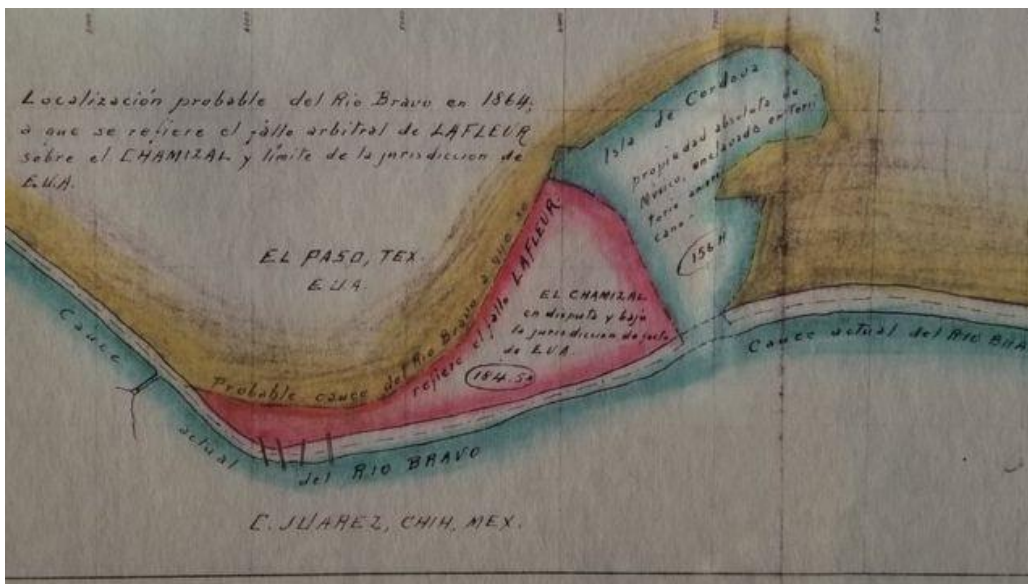 Localización probable del Rio Bravo en 1864,
a que se refiere el fallo arbitral de LAFLEUR
sobre el CHAMIZAL y límite de la jurisdiccion de
E.U.A.
EL PASO, TEX.
E.U.A.
Isla de Cordova
propiedad absoluta de
México, enclavado en terri
torio ameri
cano-
156 H
Probable cauce del Rio Bravo a que se
refiere el fallo LAFLEUR
EL CHAMIZAL
en disputa y bajo
la jurisdiccion de facto
de EUA
184.5
Cauce actual del RIO BRAVO
Cauce actual del RIO BRA
C. JUAREZ, CHIH, MEX.